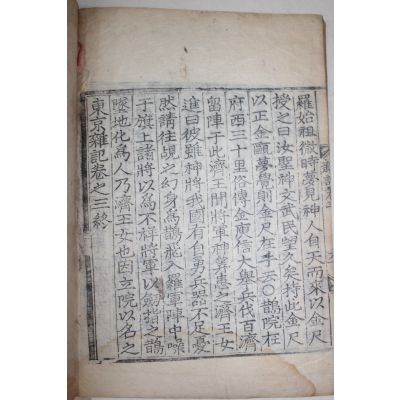 羅始祖微時夢見神人自天而來以金尺
授之曰汝聖神文武民望久矣持此金尺
以正金甌夢覺則金尺在手云○鵲院在
府西三十里俗傳金庾信大擧兵伐百濟
留陣于此濟王將軍神筭患之濟王女
進曰彼雖神將我國有自勇兵器不足憂
然請往覘之幻身爲鵲飛入羅軍陣中噪
于旗上諸將以爲不祥將軍以劒指之鵲
墜地化爲人乃濟王女也因立院以名之
東京雜記卷之三終